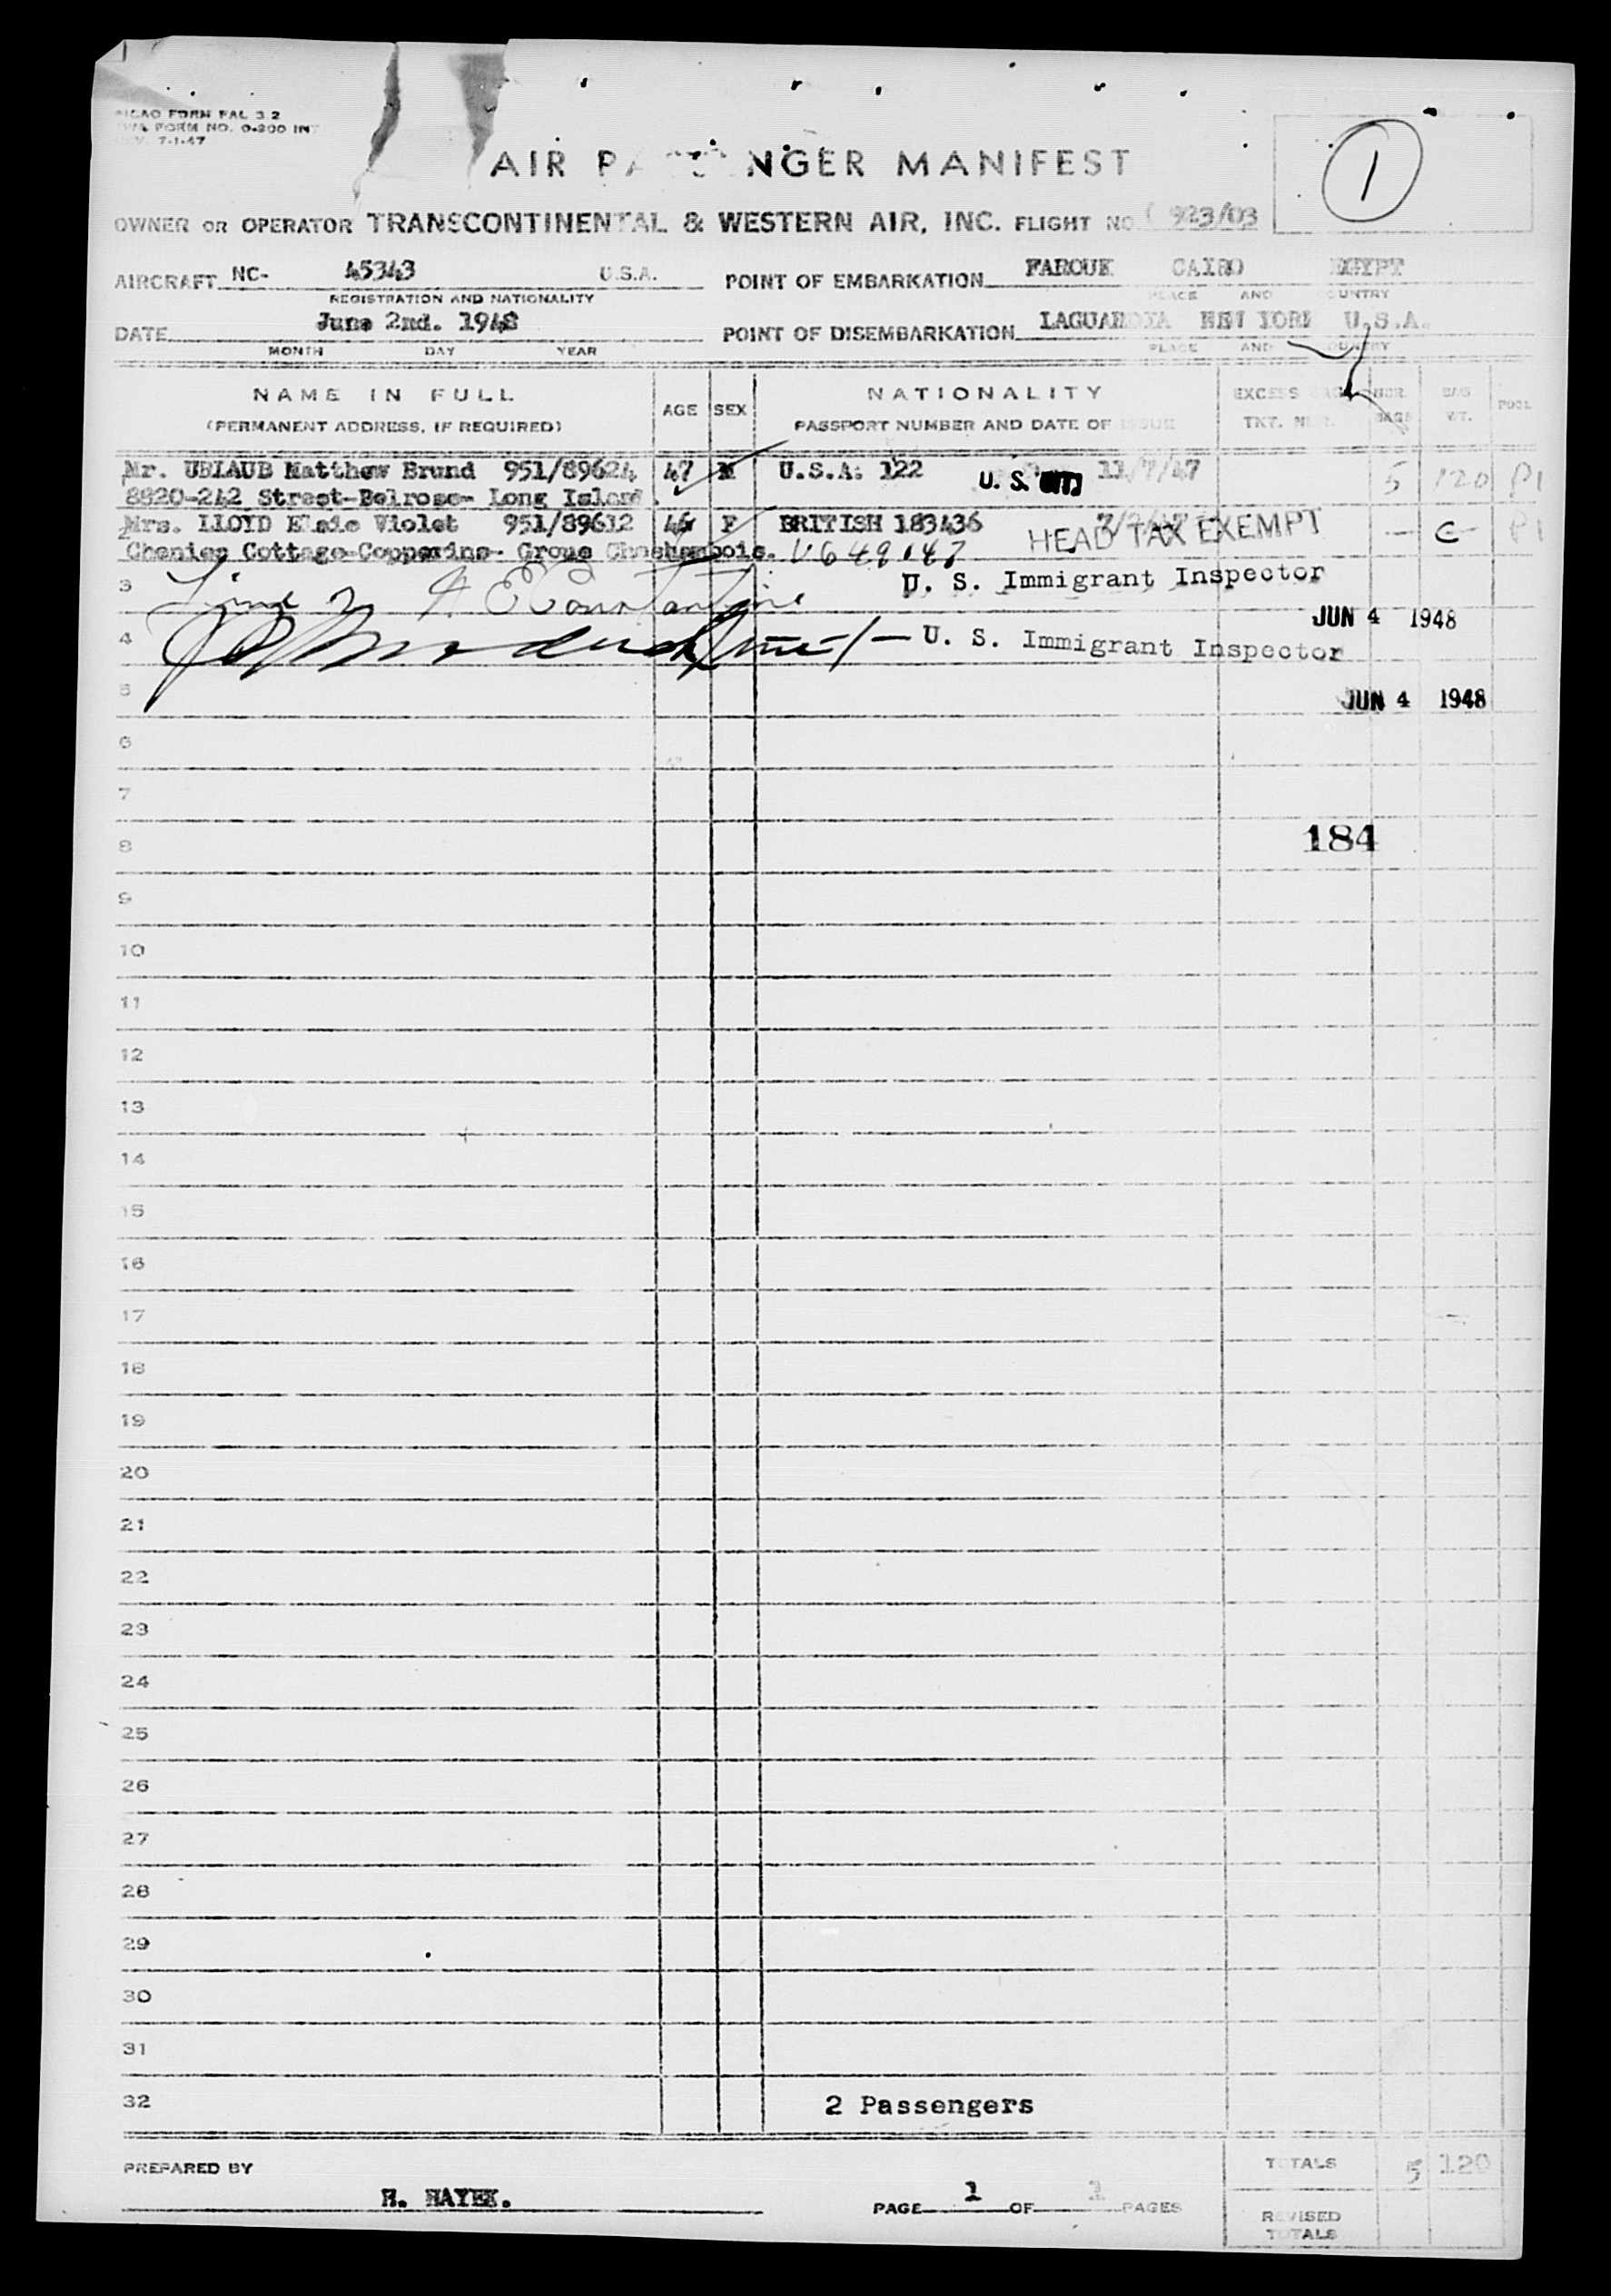 PICAO FORM FAL 3.2
TWA FORM NO. O-200 INT
REV. 7-1-47
AIR PASSENGER MANIFEST
1
OWNER OR OPERATOR TRANSCONTINENTAL & WESTERN AIR, INC. FLIGHT NO 923/03
AIRCRAFT NC- 45343 U.S.A. POINT OF EMBARKATION FAROUK CAIRO EGYPT
REGISTRATION AND NATIONALITY PLACE AND COUNTRY
DATE June 2nd. 1948 POINT OF DISEMBARKATION LAGUARDIA NEW YORK U.S.A.
MONTH DAY YEAR PLACE AND COUNTRY
NAME IN FULL AGE SEX NATIONALITY EXCESS BAG NBR. BAG POOL
(PERMANENT ADDRESS, IF REQUIRED) PASSPORT NUMBER AND DATE OF ISSUE TKT. BAGS WT.
Mr. UBLAUB Matthew Brund 951/89624 47 M U.S.A: 122 11/7/47 5 120 P1
8820-242 Street-Belrose- Long Island. U.S.
2 Mrs. LLOYD Elsie Violet 951/89612 46 F BRITISH 183436 HEAD TAX EXEMPT — P1
Chenies Cottage-Copperins- Groue
3 Line 2 U. S. Immigrant Inspector
JUN 4 1948
4 Line 1 — U. S. Immigrant Inspector
5 JUN 4 1948
6
7
8 184
9
10
11
12
13
14
15
16
17
18
19
20
21
22
23
24
25
26
27
28
29
30
31
32 2 Passengers
PREPARED BY TOTALS 5 120
H. HAYEK. PAGE 1 OF 1 PAGES
REVISED
TOTALS